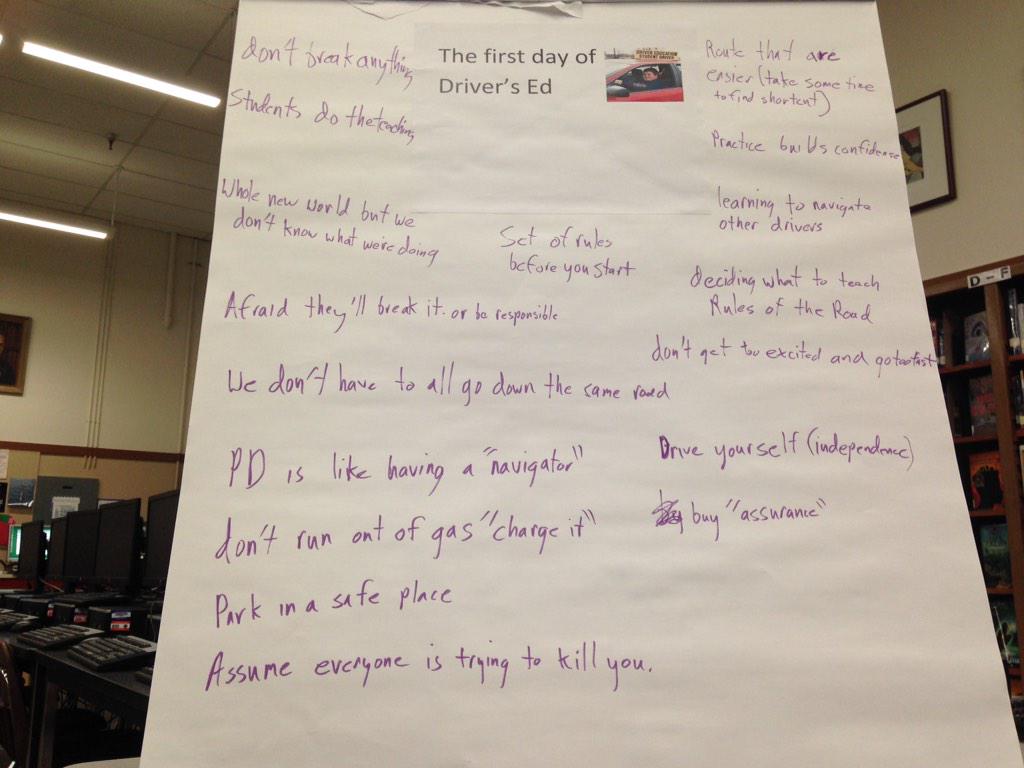 The first day of
Driver's Ed
DRIVER EDUCATION
STUDENT DRIVER
don't break anything
Students do the teaching
Whole new world but we
don't know what we're doing
Set of rules
before you start
Afraid they'll break it. or be responsible
We don't have to all go down the same road
PD is like having a "navigator"
don't run out of gas "charge it"
Park in a safe place
Assume everyone is trying to kill you.
Route that are
easier (take some time
to find shortcut)
Practice builds confidence
learning to navigate
other drivers
deciding what to teach
Rules of the Road
don't get too excited and go too fast
Drive yourself (independence)
buy "assurance"
D - F